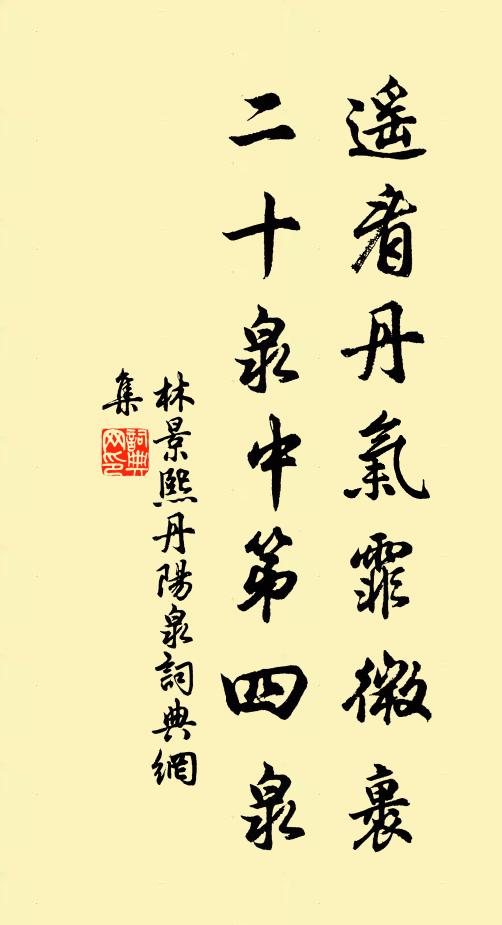 遥看丹氣霏微裏
二十泉中第四泉
林景熙丹陽泉詞典網
集
詞典网印